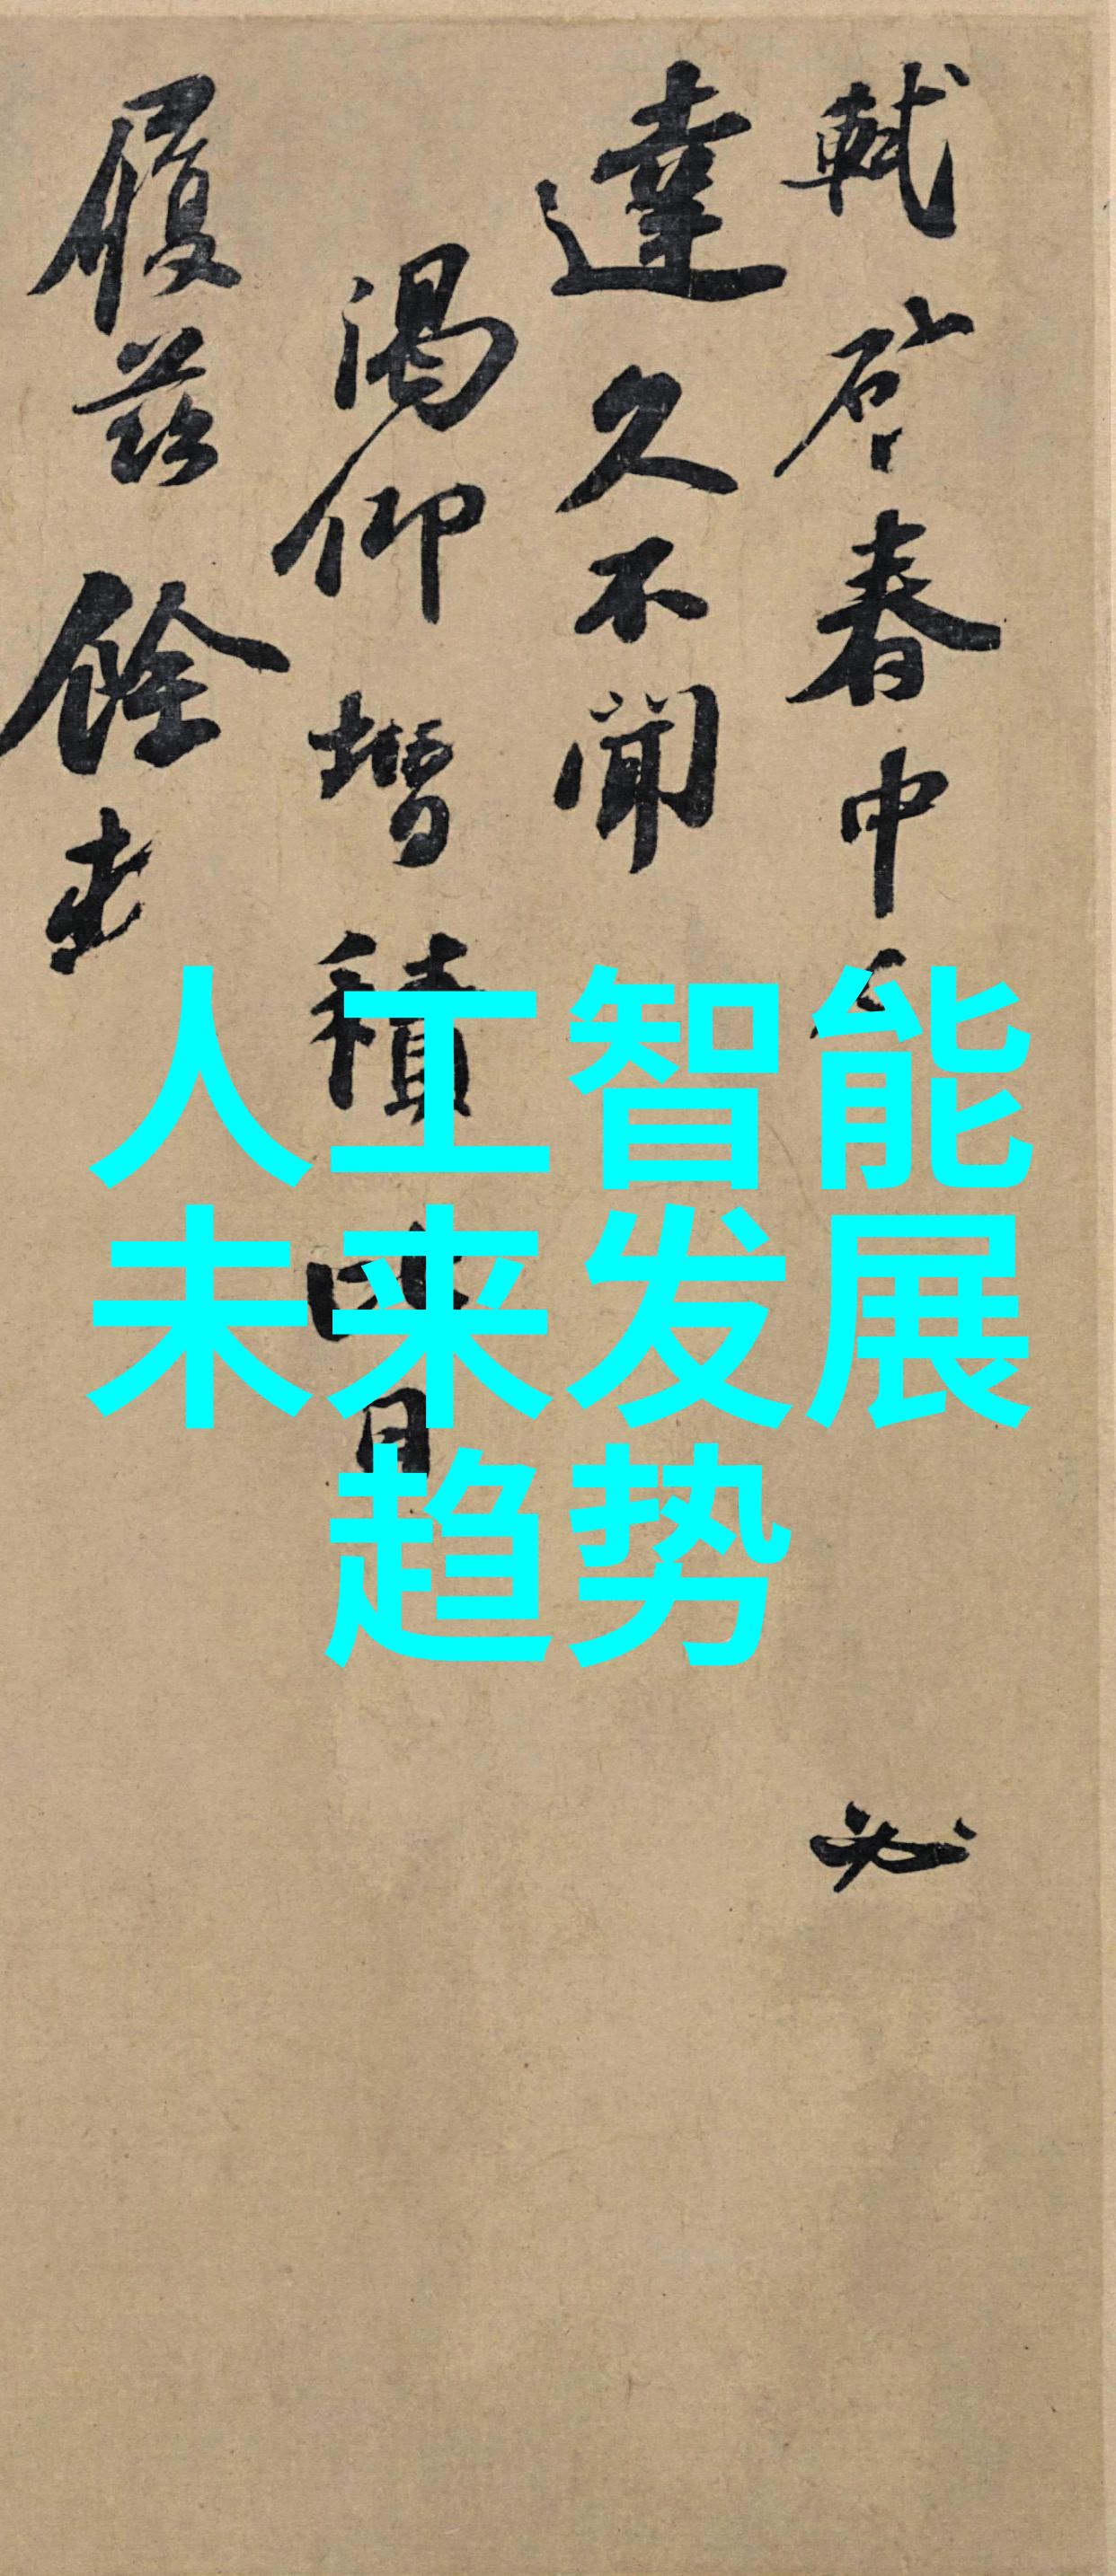 軾啓春中
必
達久不聞
渴仰增積比日
履茲餘
人工智能
未来发展
趋势